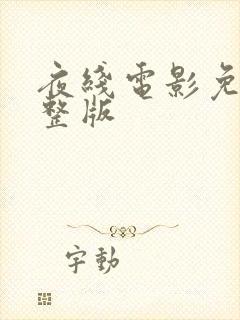 夜綫電影免
整版
字動